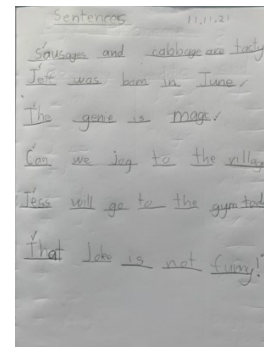 Sentences 11.11.21
Sausages and cabbage are tasty
Jeff was born in June.
The genie is magic.
Can we jog to the village
Jess will go to the gym tod
That Joke is not funny!